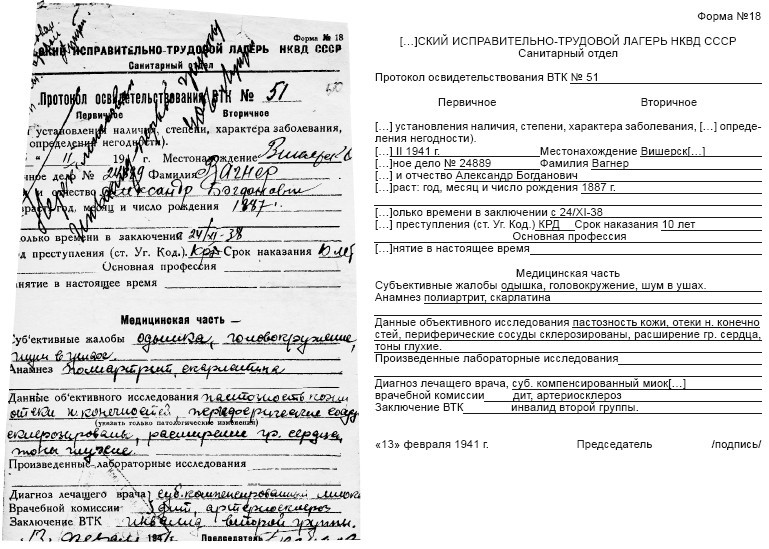 Форма № 18
СКИЙ ИСПРАВИТЕЛЬНО-ТРУДОВОЙ ЛАГЕРЬ НКВД СССР
Санитарный отдел
Протокол освидетельствования ВТК № 51
Первичное Вторичное
установления наличия, степени, характера заболевания,
определения негодности).
" II 194 г. Местонахождение
чное дело № 24889 Фамилия Вагнер
и отчество Александр Богданович
раст: год, месяц и число рождения 1887 г.
олько времени в заключении с 24/XI-38
преступления (ст. Уг. Код.) КРД Срок наказания
Основная профессия
анятие в настоящее время
Медицинская часть —
Суб'ективные жалобы одышка, головокружение,
шум в ушах.
Анамнез полиартрит, скарлатина
Данные об'ективного исследования пастозность кожи
отеки н. конечностей, периферические сосуды
(указать только патологические изменения)
склерозированы, расширение гр. сердца,
тоны глухие.
Произведенные лабораторные исследования
Диагноз лечащего врача суб. компенсированный миока
Врачебной комиссии дит, артериосклероз
Заключение ВТК инвалид второй группы.
13 февраля 194 Председатель
Форма №18
[…]СКИЙ ИСПРАВИТЕЛЬНО-ТРУДОВОЙ ЛАГЕРЬ НКВД СССР
Санитарный отдел
Протокол освидетельствования ВТК № 51
Первичное Вторичное
[…] установления наличия, степени, характера заболевания, […] опреде-
ления негодности).
[…] II 1941 г. Местонахождение Вишерск[…]
[…]ное дело № 24889 Фамилия Вагнер
[…] и отчество Александр Богданович
[…]раст: год, месяц и число рождения 1887 г.
[…]олько времени в заключении с 24/XI-38
[…] преступления (ст. Уг. Код.) КРД Срок наказания 10 лет
Основная профессия
[…]нятие в настоящее время
Медицинская часть
Субъективные жалобы одышка, головокружение, шум в ушах.
Анамнез полиартрит, скарлатина
Данные объективного исследования пастозность кожи, отеки н. конечно
стей, периферические сосуды склерозированы, расширение гр. сердца,
тоны глухие.
Произведенные лабораторные исследования
Диагноз лечащего врача, суб. компенсированный миок[…]
врачебной комиссии дит, артериосклероз
Заключение ВТК инвалид второй группы.
«13» февраля 1941 г. Председатель /подпись/